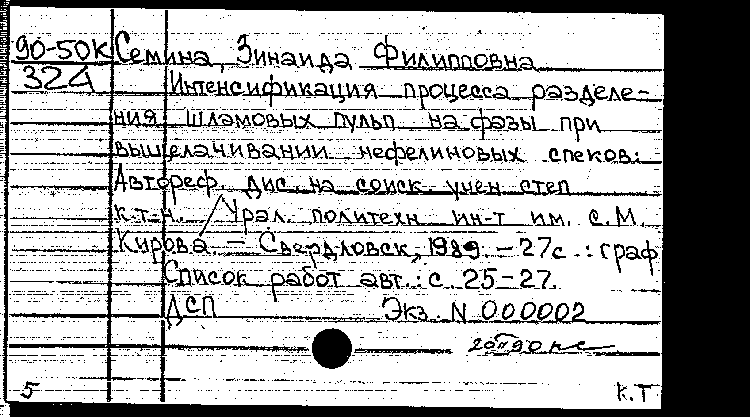 90-50К Семина, Зинаида Филипповна
324 Интенсификация процесса разделе-
ния шламовых пульп на фазы при
выщелачивании нефелиновых спеков:
Автореф. дис. на соиск. учен. степ.
к.т.н. / Урал. политехн. ин-т им. С.М.
Кирова. – Свердловск, 1989. – 27с. : граф
Список работ авт.: с. 25-27.
ДСП Экз. N 000002
5 К.Т